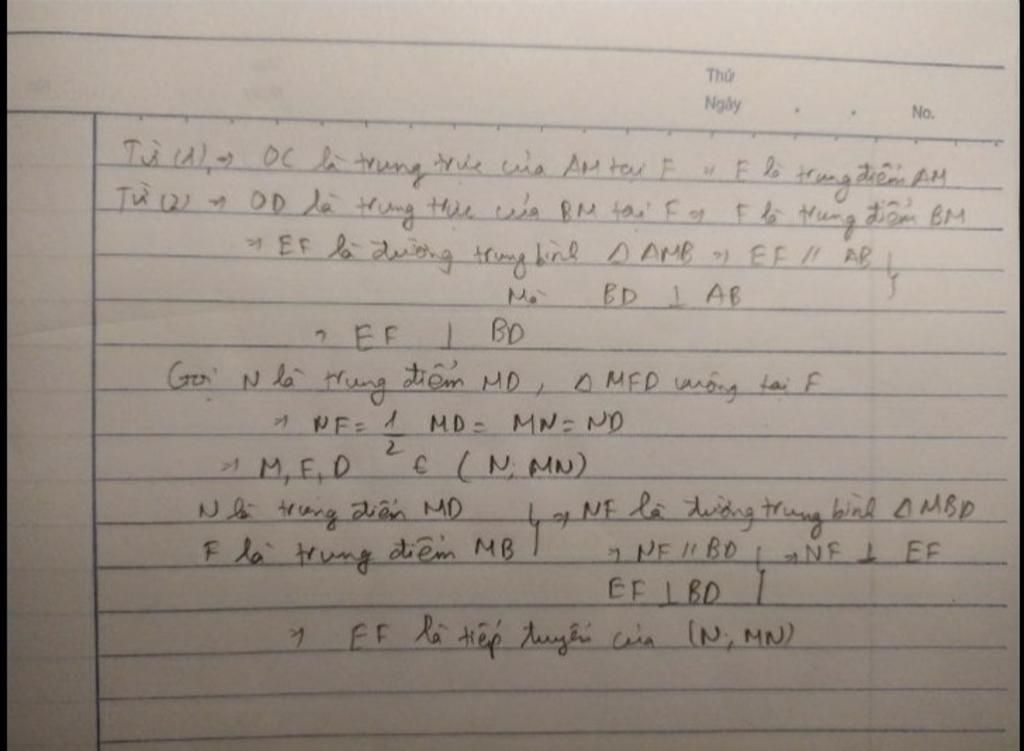 Thứ
Ngày . . No.
Từ (1) → OC là trung trực của AM tại F → E là trung điểm AM
Từ (2) → OD là trung trực của BM tại F → F là trung điểm BM
→ EF là đường trung bình △ AMB → EF // AB
Mà BD ⊥ AB
→ EF ⊥ BD
Gọi N là trung điểm MD, △ MFD vuông tại F
→ NF = 1/2 MD = MN = ND
→ M, F, D ∈ (N; MN)
N là trung điểm MD → NF là đường trung bình △ MBD
F là trung điểm MB → NF // BD → NF ⊥ EF
EF ⊥ BD
→ EF là tiếp tuyến của (N; MN)